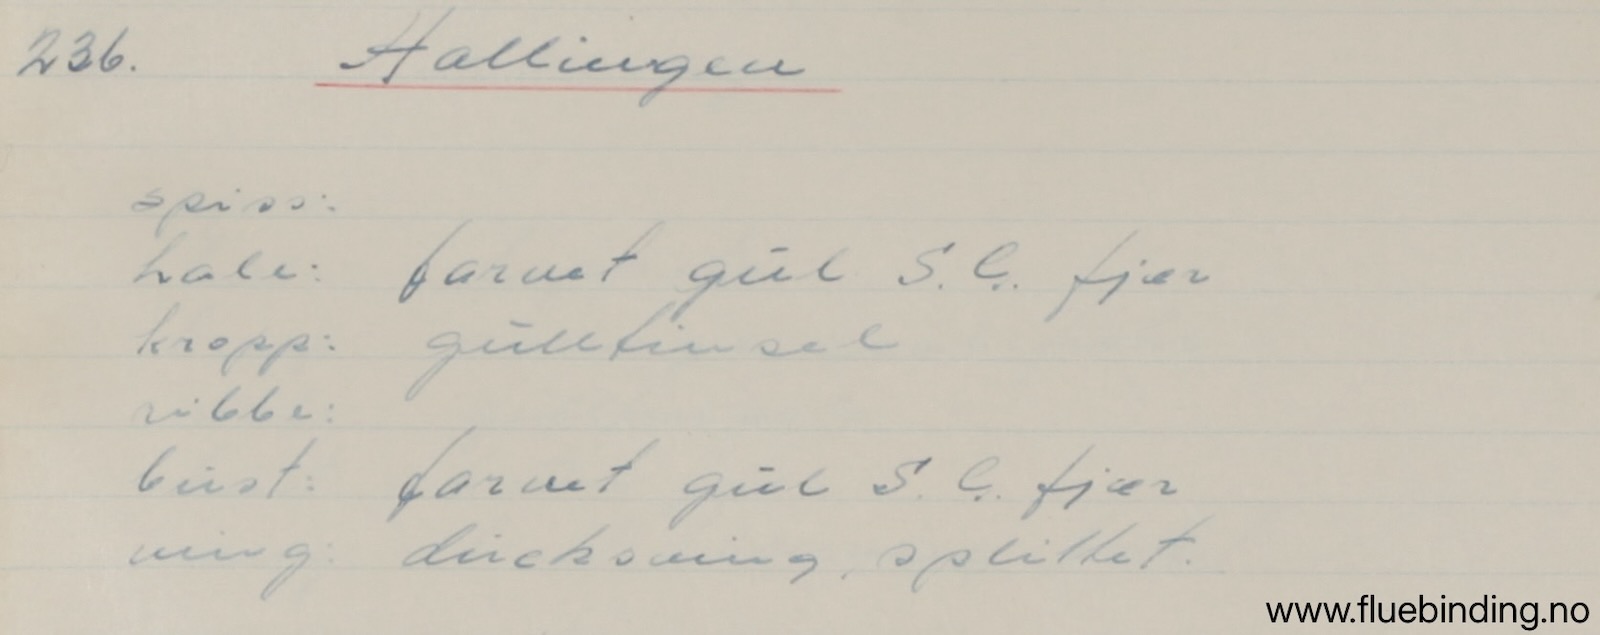 236. Hallingen
spiss:
hale: farvet gul S.C. fjær
kropp: gulltinsel
ribbe:
bust: farvet gul S.C. fjær
ving: duckswing, splittet.
www.fluebinding.no